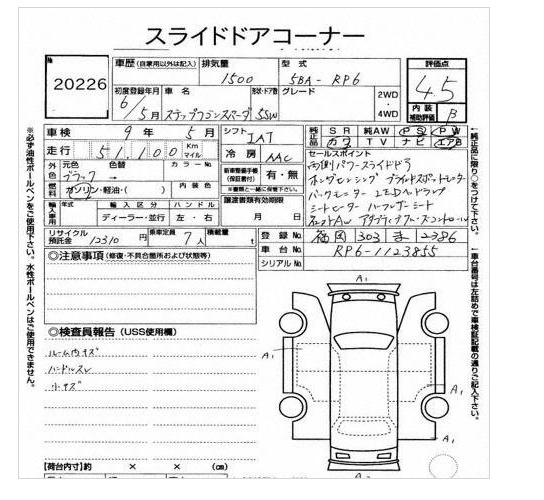 スライドドアコーナー
20226
車歴 (自家用以外は記入) 排気量 型式 評価点
1500 5BA-RP6 4.5
初度登録年月 車名 形状・ドア数 グレード 2WD・4WD 内装補助評価 B
6/5月 ステップワゴンスパーダ 5SW
車検 9年 5月 シフト IAT
純正品 SR 純AW PS PW
カワ TV ナビ エアB
走行 51,100 Km マイル 冷房 AAC
セールスポイント
両側パワースライドドア
外色 元色 色替 カラーNo.
ブラック →
新車整備手帳(保証書付) 有・無
ホンダセンシング ブラインドスポットモニター
燃料 ガソリン・軽油・( ) 内装色
※書類と一緒に保管して下さい
パークモニター LEDヘッドランプ
輸入車用 年式 輸入区分 ハンドル
ディーラー・並行 左・右
譲渡書類有効期限
月 日
シートヒーター ハーフレザーシート
純正AW アダプティブクルーズコントロール
リサイクル預託金 12310 円 乗車定員 7人 積載量 t
登録No 福岡 303 ま 2986
車台No RP6-1123855
シリアルNo.
◎注意事項 (修復・不具合箇所および状態等)
◎検査員報告 (USS使用欄)
ルーム内キズ
ハンドルスレ
小キズ
A1
A1
A1
A1
A2
【荷台内寸】約 × × (cm)
※必ず油性ボールペンをご使用下さい。水性ボールペンはご使用できません。
←純正品に限り○をつけて下さい。
←車台番号は左詰めで車検証記載の通りご記入下さい。